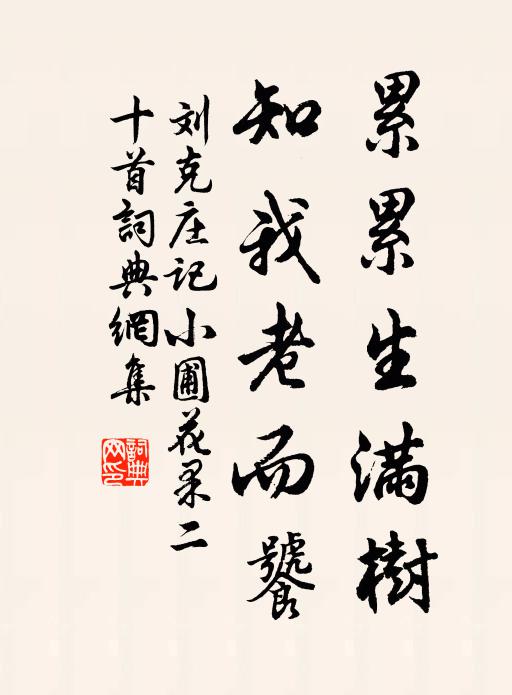 累累生满樹
知我老而饕
刘克庄记小圃花果二
十首詞典網集
詞典
网印